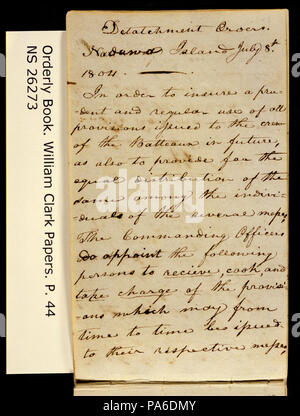 Orderly Book. William Clark Papers. P. 44
NS 26273
Detatchment Orders.
Nadawa Island July 8th
1804.
In order to insure a pru-
dent and regular use of all
provisions issued to the crew
of the Batteaux in future,
as also to provide for the
equal distribution of the
same among the indivi-
duals of the several messes,
The Commanding Officers
do appoint the following
persons to recieve, cook, and
take charge of the provisi-
ons which may from
time to time be issued
to their respective messes,
alamy
alamy
PA6DMY